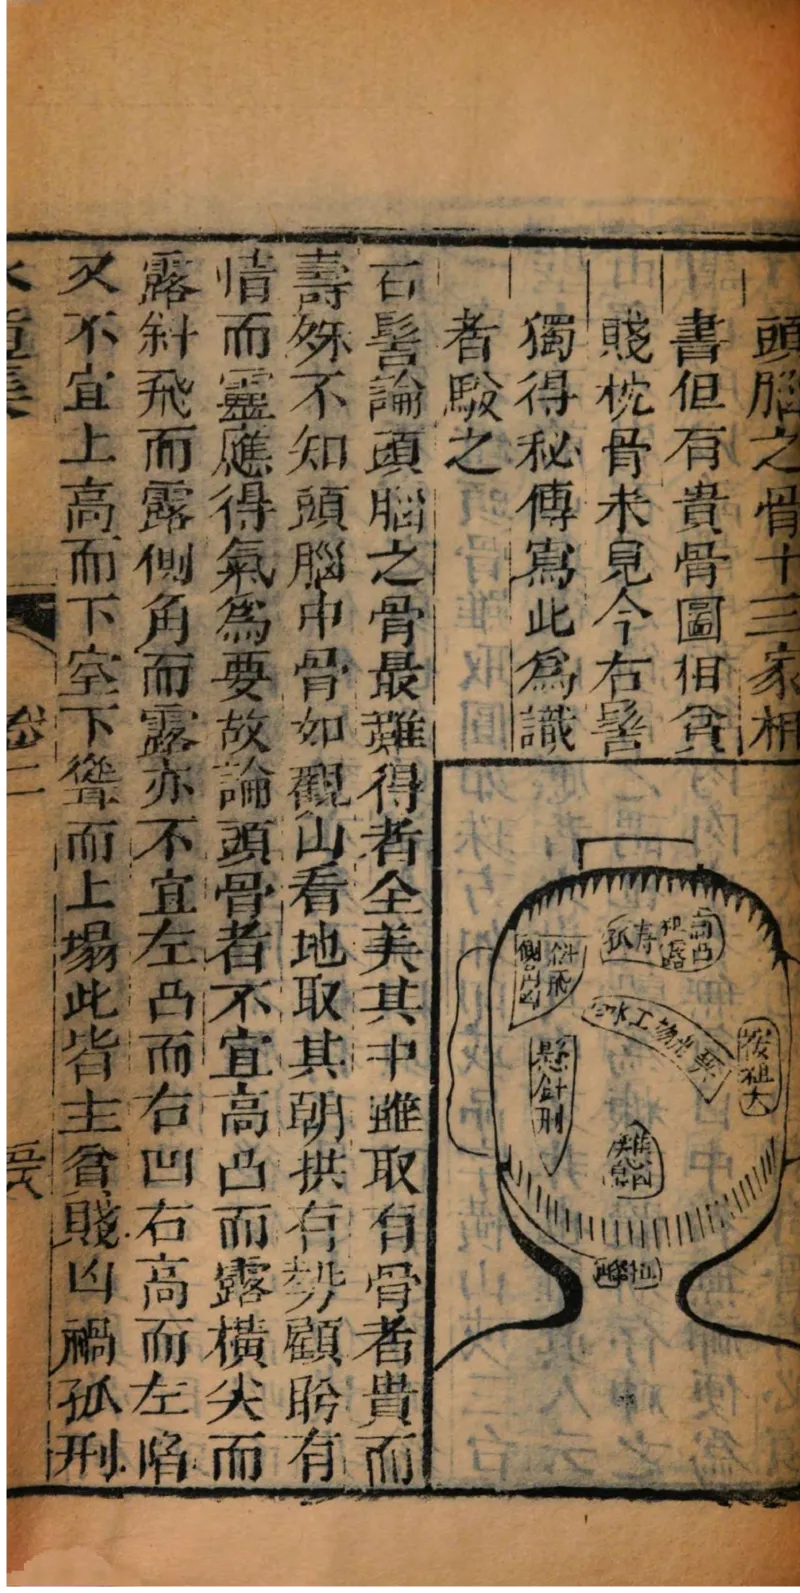 頭腦之骨十三家相
書但有貴骨圖相貧
賤枕骨未見今右髻
獨得秘傳寫此爲識
者驗之
懸針刑
右髻論頭腦之骨最難得者全美其中雖取有骨者貴而
壽殊不知頭腦中骨如觀山看地取其朝拱有勢顧盻有
情而靈應得氣爲要故論頭骨者不宜高凸而露橫尖而
露斜飛而露側角而露亦不宜左凸而右凹右高而左陷
又不宜上高而下室下聳而上塌此皆主貧賤凶禍孤刑
卷二